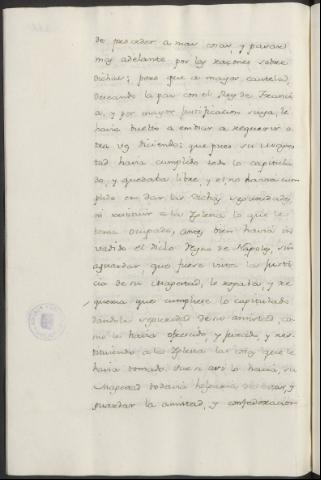 de proceder a mas cosas, y pasase
mas adelante por las razones sobre
dichas; pero que a mayor cautela,
deseando la paz con el Rey de Franci
a, y por mayor justificacion suya, le
havia buelto a embiar a requerir o
tra vez diciendo: que pues su Mages
tad havia cumplido todo lo capitula
do, y quedaba libre, y el no havia cum
plido con dar las dichas seguridades,
ni restituir a la Iglesia lo que le
tenia ocupado, antes bien havia in
vadido el dicho Reyno de Napoles, sin
aguardar que fuese vista la justi
cia de su Magestad, le rogaba, y re
queria que cumpliese lo capitulado
dandole seguridad de su amistad, co
mo le havia ofrecido, y jurado, y res
tituiendo a la Iglesia las cosas que le
havia tomado. Que si asi lo hacia, su
Magestad todavia holgaria de estar, y
guardar la amistad, y confederacion